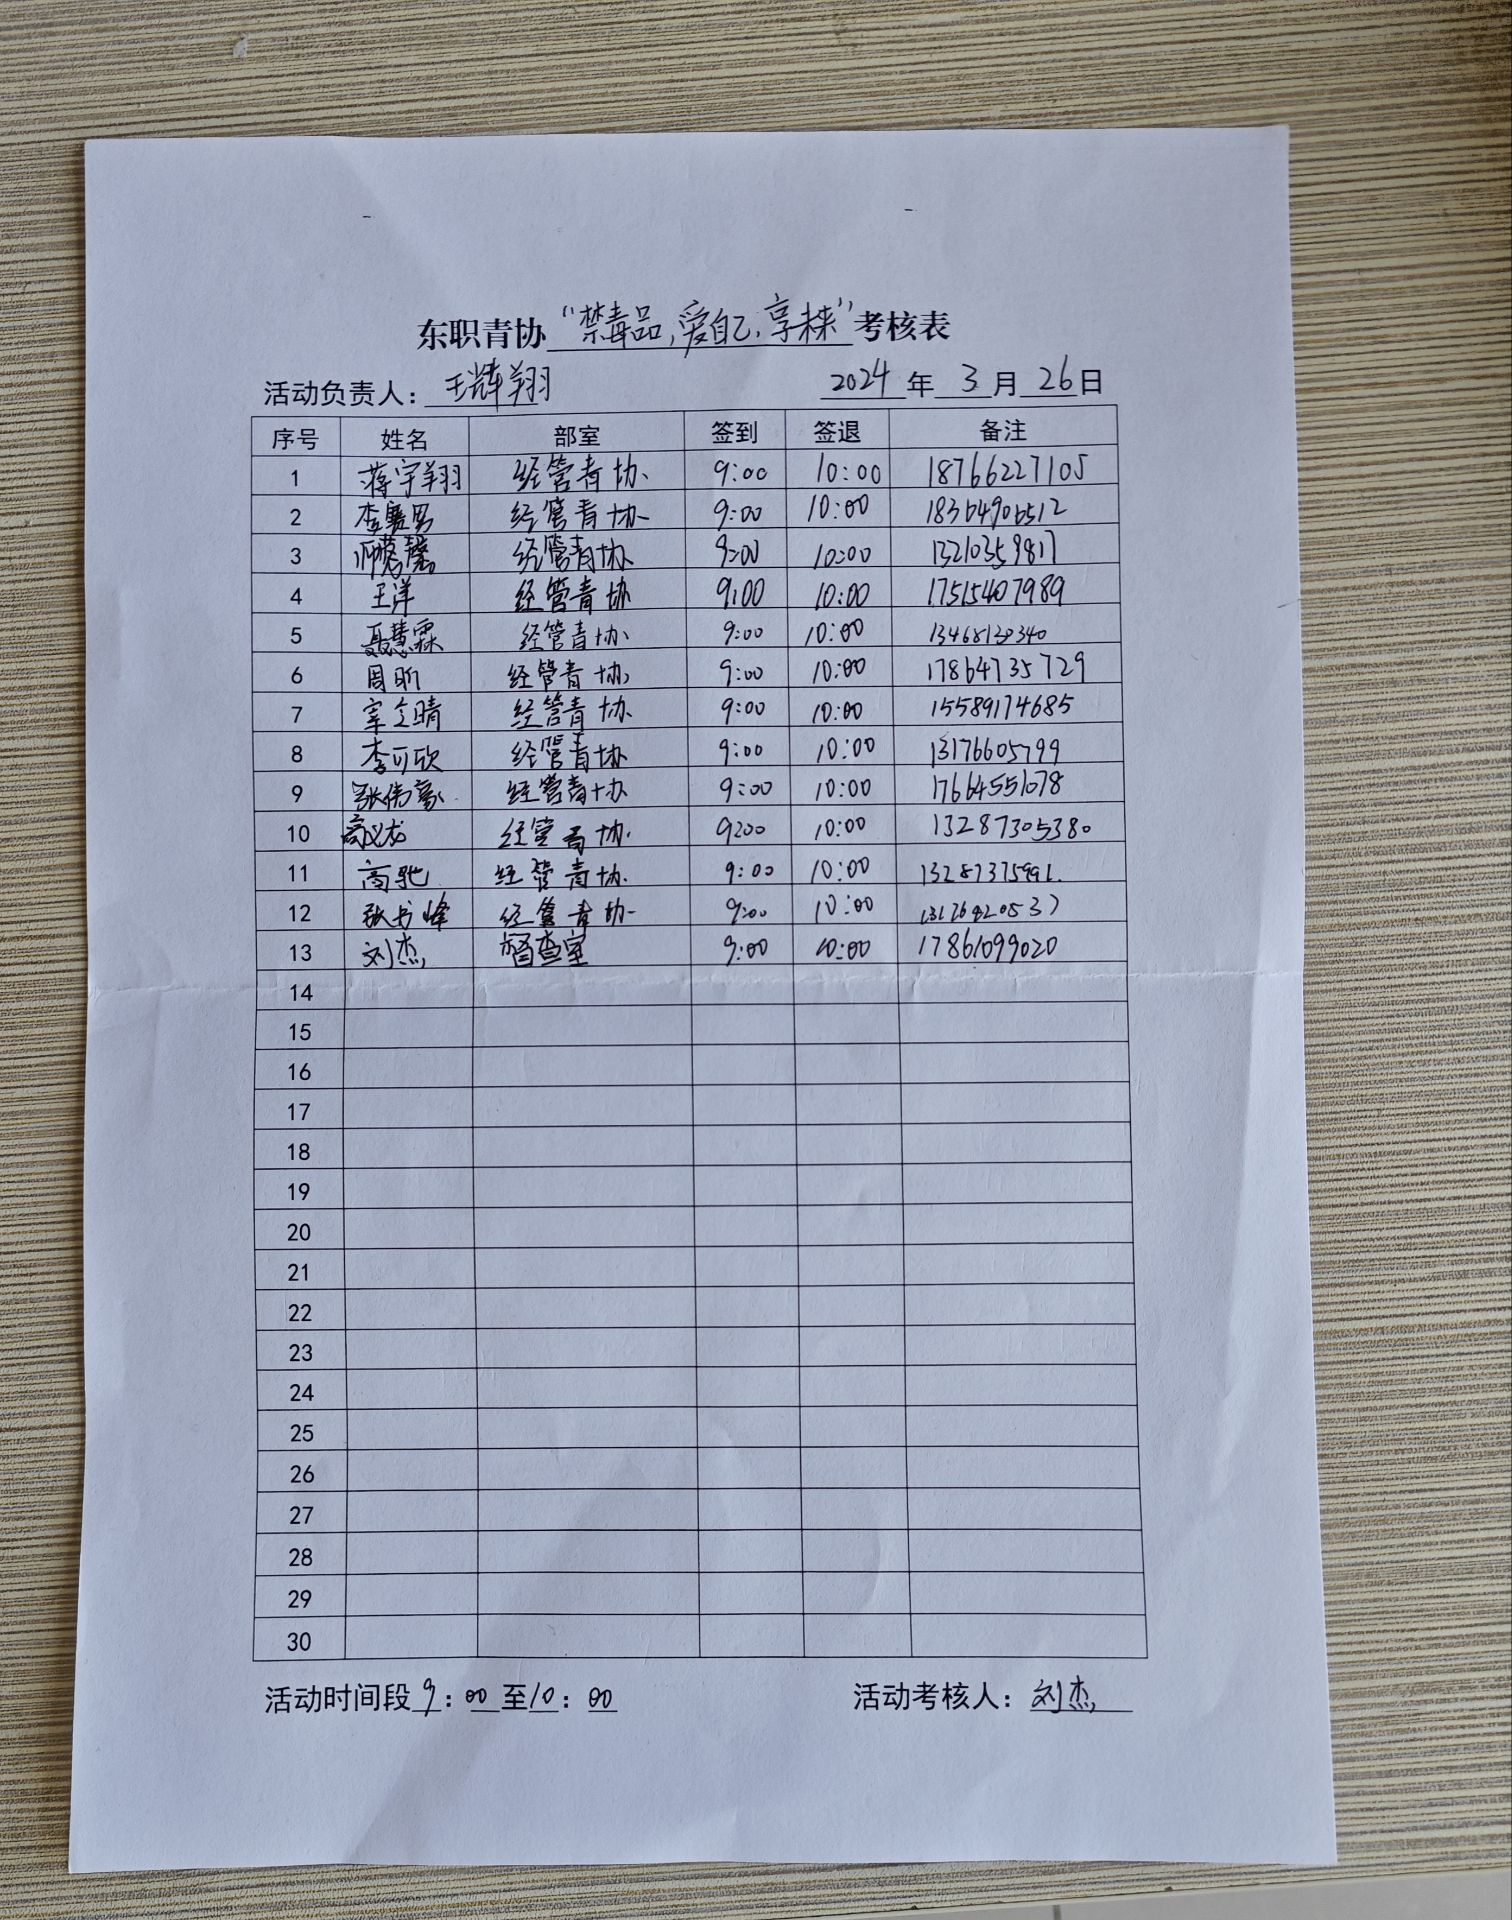 东职青协“禁毒品,爱自己,享未来”考核表
活动负责人：王辉翔 2024年3月26日
序号 姓名 部室 签到 签退 备注
1 蒋宇翔 经管青协 9:00 10:00 18766227105
2 李赛男 经管青协 9:00 10:00 18364906512
3 经管青协 9:00 10:00 13210359817
4 王洋 经管青协 9:00 10:00 17515407989
5 聂慧霖 经管青协 9:00 10:00 13468130340
6 周昕 经管青协 9:00 10:00 17864735729
7 经管青协 9:00 10:00 15589174685
8 李可欣 经管青协 9:00 10:00 13176605799
9 张伟豪 经管青协 9:00 10:00 17664551078
10 高义龙 经管青协 9:00 10:00 13287305380
11 高驰 经管青协 9:00 10:00 13287375991
12 张书峰 经管青协 9:00 10:00
13 刘杰 督查室 9:00 10:00 17861099020
14
15
16
17
18
19
20
21
22
23
24
25
26
27
28
29
30
活动时间段 9：00 至10：00 活动考核人：刘杰